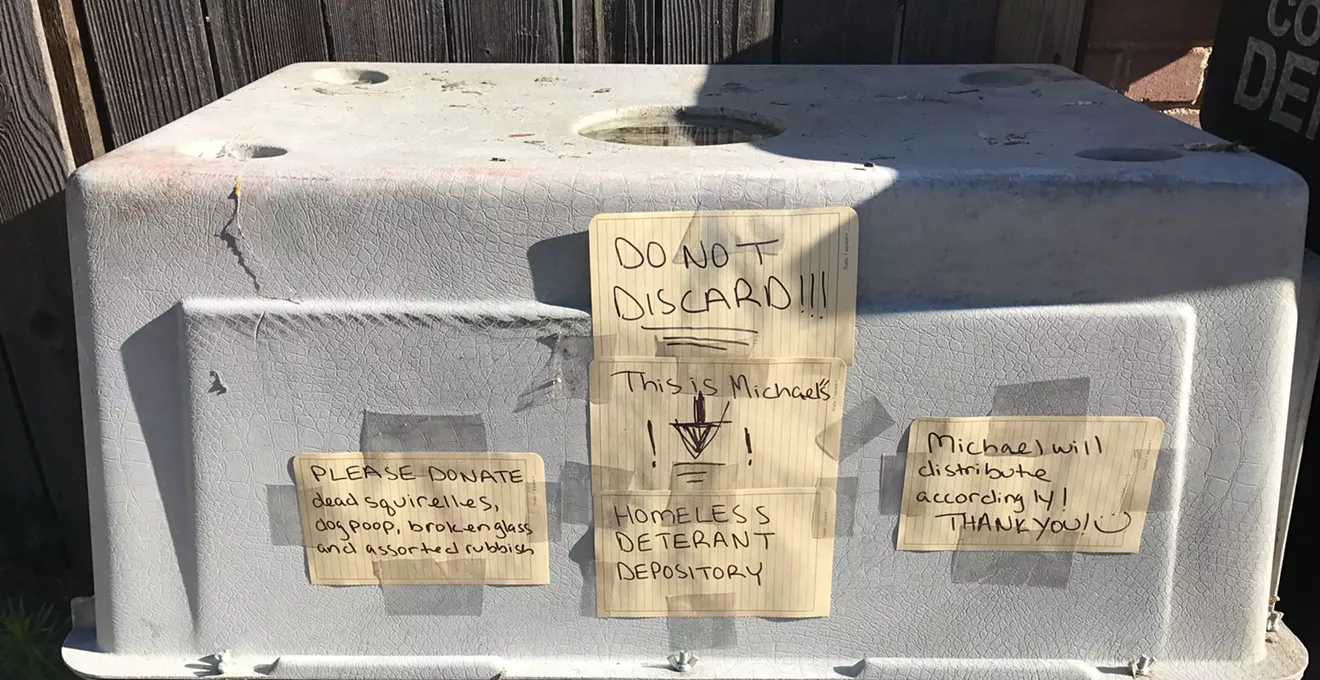 CO
DE
DO NOT
DISCARD!!!
This is Michael's
! !
HOMELESS
DETERANT
DEPOSITORY
PLEASE DONATE
dead squirelles,
dog poop, broken glass
and assorted rubbish
Michael will
distribute
accordingly!
THANK YOU!